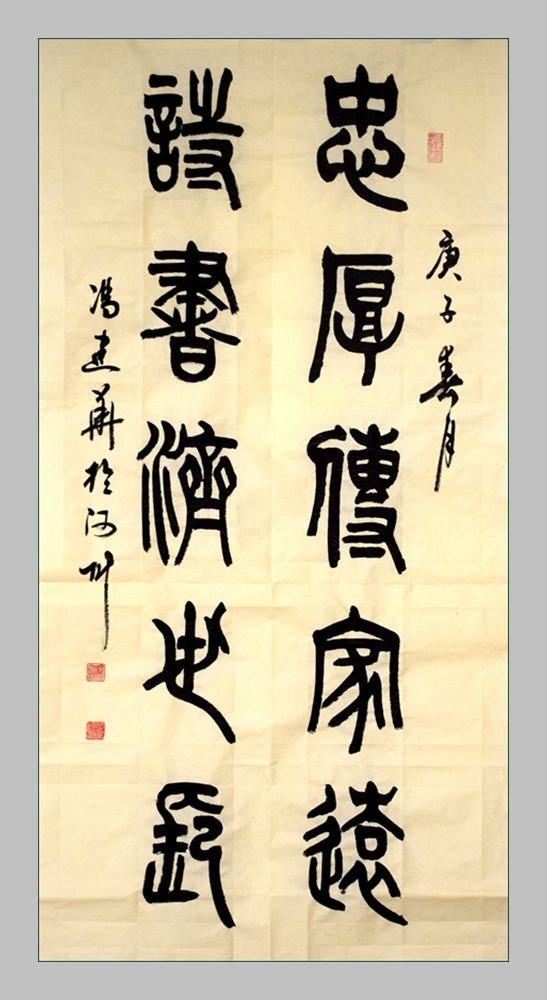 庚子春月
忠厚傳家遠
詩書濟世長
冯建華於河州